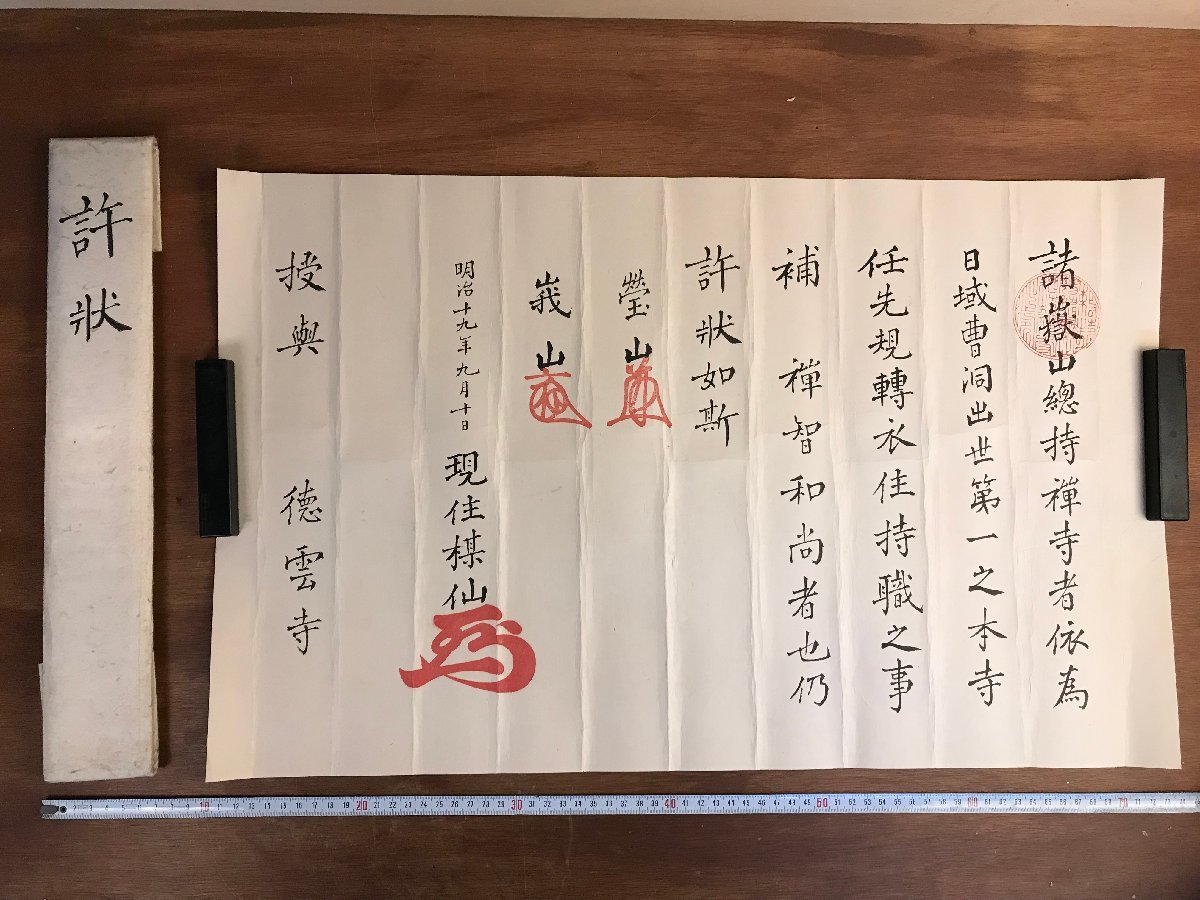 諸嶽山總持禪寺者依為
日域曹洞出世第一之本寺
任先規轉衣住持職之事
補 禪智和尚者也仍
許狀如斯
瑩山
峩山
明治十九年九月十日 現住楳仙
授與 德雲寺
許狀
10 20 30 40 50 60 70